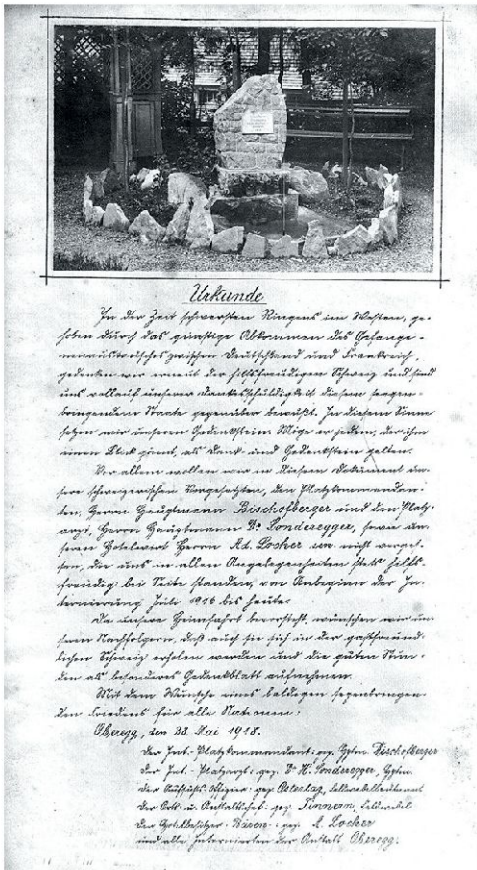 Urkunde
In der Zeit schwersten Ringens im Westen, ge-
hoben durch das günstige Abkommen des Gefange-
nenaustausches zwischen Deutschland und Frankreich,
gedenken wir erneut der hilfsfreudigen Schweiz und sind
uns vollauf unserer Dankesschuldigkeit diesem segen-
bringenden Staate gegenüber bewußt. In diesem Sinne
setzen wir unseren Gedenkstein. Möge er jedem, der ihm
einen Blick gönnt, als Dank- und Gedenkstein gelten.
Vor allem wollen wir in diesem Dokument un-
sere schweizerischen Vorgesetzten, den Platzkommandan-
ten, Herrn Hauptmann Bischofberger und den Platz-
arzt, Herrn Hauptmann Dr. Sonderegger, sowie un-
seren Hotelwirt Herrn Ad. Locher nicht verges-
sen, die uns in allen Angelegenheiten stets hilfs-
freudig bei Seite standen, von Anbeginn der In-
ternierung Juli 1916 bis heute.
Da unsere Heimfahrt bevorsteht, wünschen wir un-
sern Nachfolgern, daß auch sie sich in der gastfreund-
lichen Schweiz erholen werden und die guten Stun-
den als besonderes Gedenkblatt aufnehmen.
Mit dem Wunsche eines baldigen segenbringen-
den Friedens für alle Nationen,
Oberegg, den 28. Mai 1918.
Der Int.-Platzkommandant: gez. Hptm. Bischofberger
Der Int.-Platzarzt: gez. Dr. H. Sonderegger, Hptm.
Der Aufsichts-Offizier: gez. Ostertag, Feldwebelleutnant
Der Orts- u. Anstaltschef: gez. Finnom, Feldwebel
Der Hotelbesitzer - Bären -: gez. A. Locher
und alle Internierten der Anstalt Oberegg.